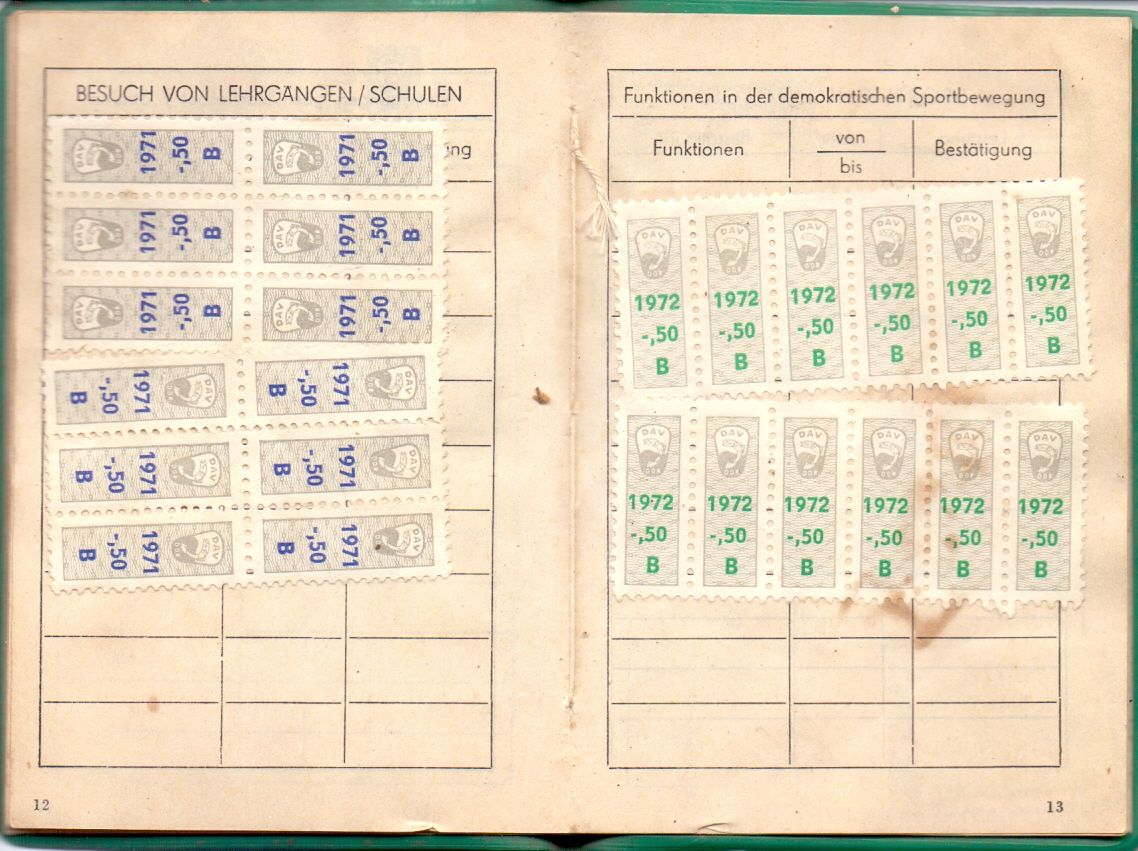 BESUCH VON LEHRGÄNGEN/SCHULEN
ng
DAV 1971 -,50 B
DAV 1971 -,50 B
DAV 1971 -,50 B
DAV 1971 -,50 B
DAV 1971 -,50 B
DAV 1971 -,50 B
DAV 1971 -,50 B
DAV 1971 -,50 B
DAV 1971 -,50 B
DAV 1971 -,50 B
DAV 1971 -,50 B
DAV 1971 -,50 B
12
Funktionen in der demokratischen Sportbewegung
Funktionen
von
bis
Bestätigung
DAV DAV DAV DAV DAV DAV
DDR DDR DDR DDR DDR DDR
1972 1972 1972 1972 1972 1972
-,50 -,50 -,50 -,50 -,50 -,50
B B B B B B
DAV DAV DAV DAV DAV DAV
DDR DDR DDR DDR DDR DDR
1972 1972 1972 1972 1972 1972
-,50 -,50 -,50 -,50 -,50 -,50
B B B B B B
13